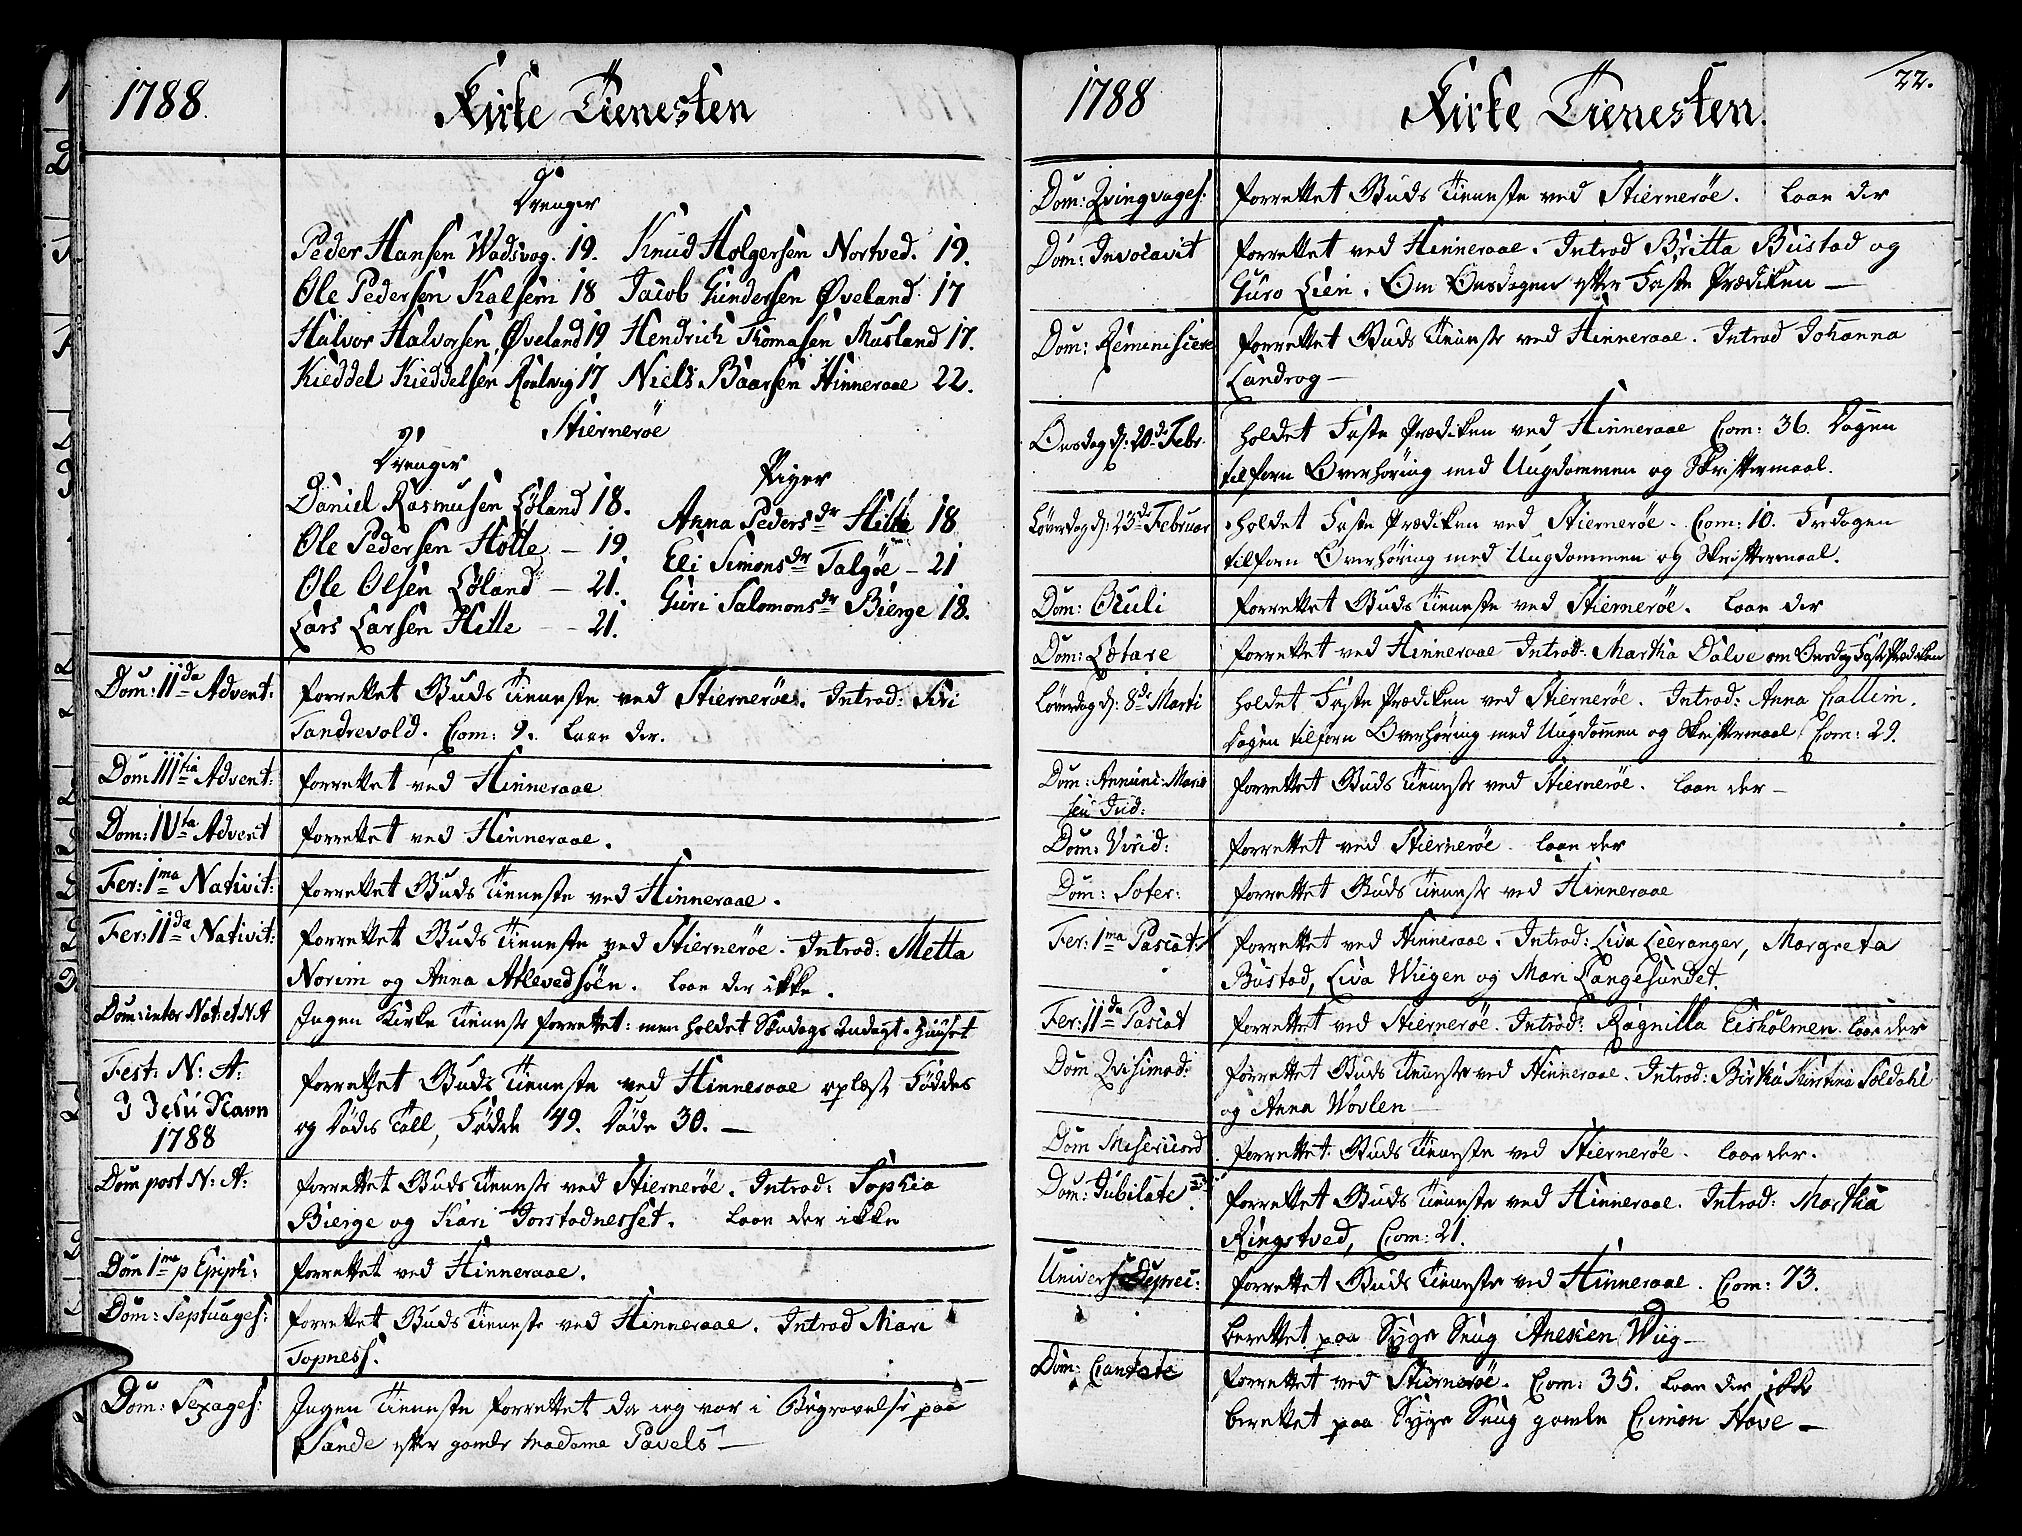 1788. Kirke Tienesten
Drenger
Peder Hansen Wadsvog. 19. Knud Holgersen Nortved. 19.
Ole Pedersen Kalsem 18 Jacob Gundersen Øveland 17
Halvor Halvorsen Øveland 19 Hendrich Thomasen Musland 17.
Kieddel Kieddelsen 17 Niels Baarsen Hinneraae 22.
Stiernerøe
Drenger Piger
Daniel Rasmusen Løland 18. Anna Pedersdr Hille 18
Ole Pedersen Holle - 19. Eli Simonsdr Talgøe - 21
Ole Olsen Løland - 21. Guri Salomonsdr Bierge 18.
Lars Larsen Hille - 21.
Dom: IIda Advent: forrettet Guds Tieneste ved Stiernerøe. Introd: Siri
Tandrevold. Com: 9. laae der.
Dom: IIItia Advent: forrettet ved Hinneraae
Dom: IVta Advent forrettet ved Hinneraae.
Fer: 1ma Nativit: forrettet Guds Tieneste ved Hinneraae.
Fer: IIda Nativit: forrettet Guds Tieneste ved Stiernerøe. Introd: Metta
Norim og Anna Atlevedsøen. laae der ikke.
Dom: inter Nat: et N: A Ingen Kirke Tieneste forrettet: men holdet Søndags Andagt i Huuset
Fest: N: A: forrettet Guds Tieneste ved Hinneraae oplæst Føddes
I Jesu Navn og Dødes Tall, Fødde 49. Døde 30. -
1788
Dom post N: A: forrettet Guds Tieneste ved Stiernerøe. Introd: Sophia
Bierge og Kari Jorstadnesset. laae der ikke
Dom 1ma p Epiph: forrettet ved Hinneraae.
Dom: Septuages: forrettet Guds Tieneste ved Hinneraae. Introd Mari
Topness.
Dom: Sexages: Ingen Tieneste forrettet da ieg var i Begravelse paa
Sande efter gamle Madame Pavels -
1788 Kirke Tienesten. 22.
Dom: Qvinqvages: forrettet Guds Tieneste ved Stiernerøe. laae der
Dom: Invocavit forrettet ved Hinneraae. Introd Britta Bustad og
Guro Lien. Om Onsdagen efter Faste Prædiken -
Dom: Reminiscere forrettet Guds Tieneste ved Hinneraae. Introd Johanna
Landrog -
Onsdag d: 20de Febr. holdet Faste Prædiken ved Hinneraae Com: 36. Dagen
tilforn Overhøring med Ungdommen og Skriftermaal.
Løverdag d: 23de Februar holdet Faste Prædiken ved Stiernerøe. Com: 10. Fredagen
tilforn Overhøring med Ungdommen og Skriftermaal.
Dom: Oculi forrettet Guds Tieneste ved Stiernerøe. laae der
Dom: Lætare forrettet ved Hinneraae Introd: Martha Dalve om Onsdag Faste Prædiken
Løverdag d: 8de Marti holdet Faste Prædiken ved Stiernerøe. Introd: Anna Callim.
Dagen tilforn Overhøring med Ungdommen og Skriftermaal Com: 29.
Dom: Annunc: Mariæ forrettet Guds Tieneste ved Stiernerøe. laae der -
seu Jud:
Dom: Virid: forrettet ved Stiernerøe. laae der
Dom: Soter: forrettet Guds Tieneste ved Hinneraae
Fer: 1ma Pascat: forrettet ved Hinneraae. Introd: Liva Leeranger, Margreta
Bustad, Liva Wiigen og Mari Langesundet.
Fer: IIda Pascat forrettet ved Stiernerøe. Introd: Ragnilla Eisholmen. laae der
Dom Qvisimod: forrettet Guds Tieneste ved Hinneraae. Introd: Birtha Kirstina Soldahl
og Anna Wovlen -
Dom Misericord forrettet Guds Tieneste ved Stiernerøe. laae der.
Dom: Jubilate forrettet Guds Tieneste ved Hinneraae. Introd: Martha
Ringstved, Com: 21.
Univers: Deprec: forrettet Guds Tieneste ved Hinneraae. Com: 73.
berettet paa Syge Seng Wiig -
Dom: Cantate forrettet ved Stiernerøe. Com: 35. laae der ikke
berettet paa Syge Seng gamle Simon Hove -